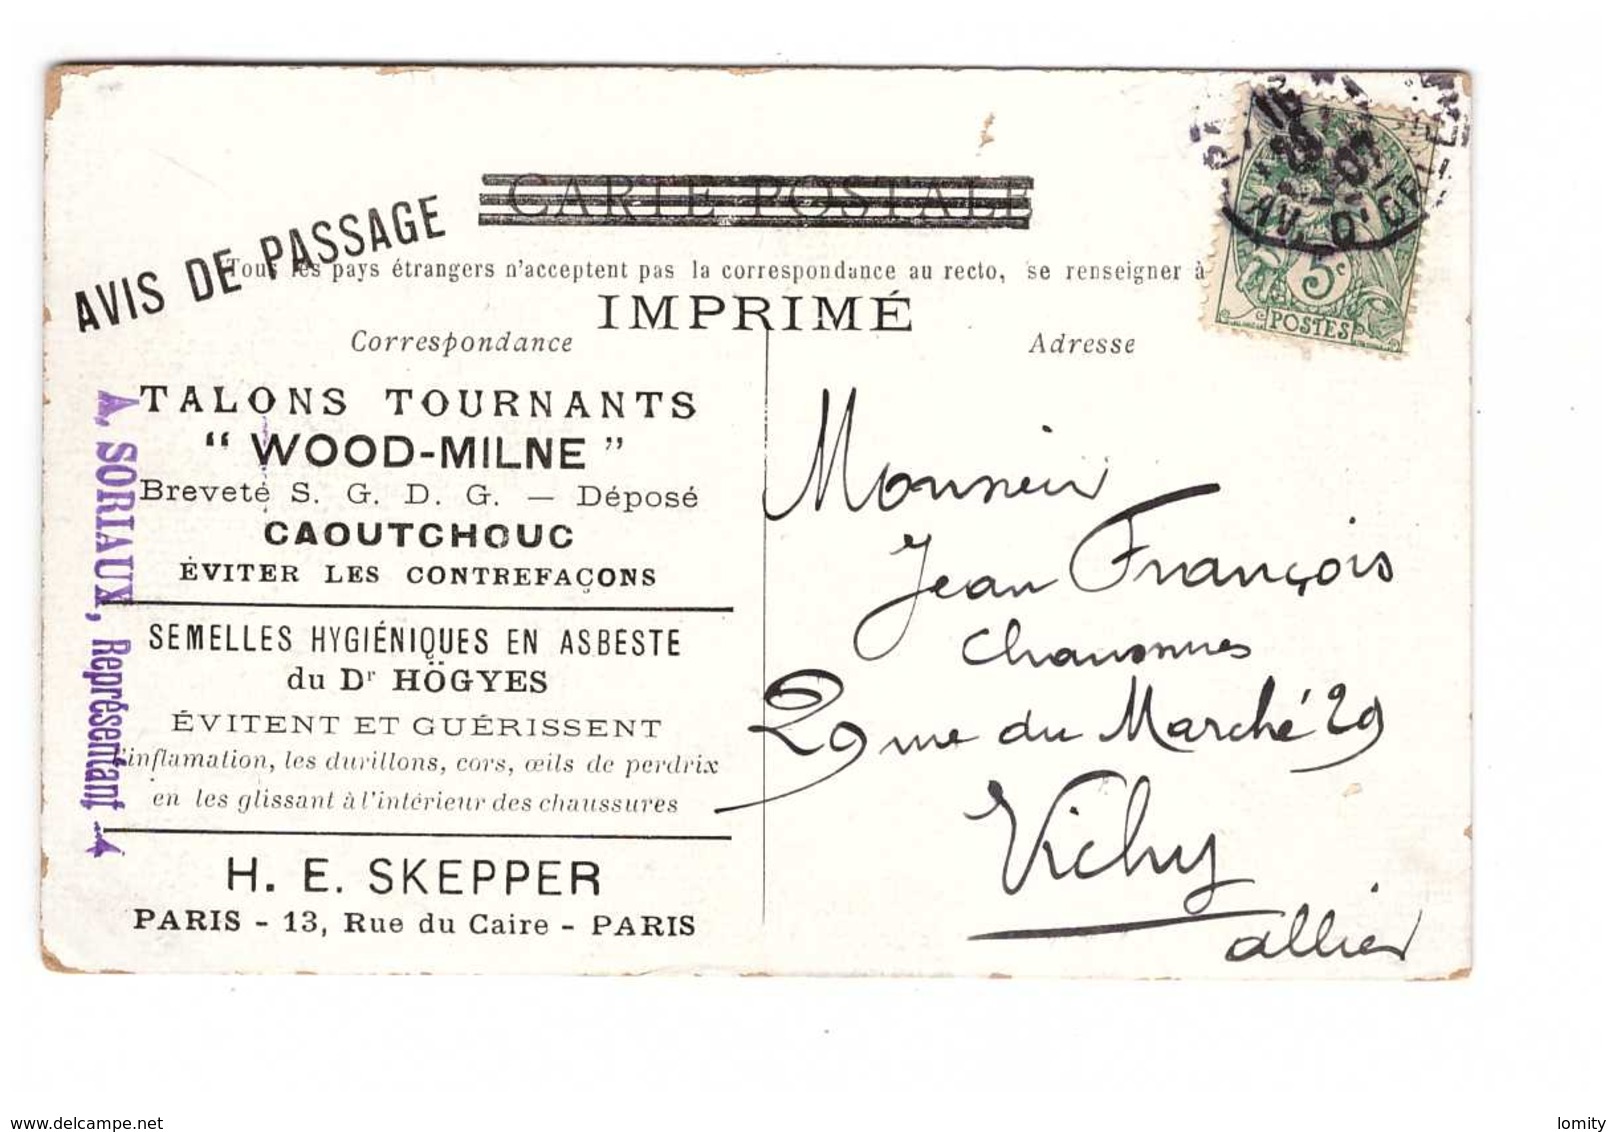 CARTE POSTALE
AVIS DE PASSAGE
Tous les pays étrangers n'acceptent pas la correspondance au recto, se renseigner à
IMPRIMÉ
Correspondance
Adresse
5c
POSTES
AV. D'ORLE
TALONS TOURNANTS
“ WOOD-MILNE ”
Breveté S. G. D. G. — Déposé
CAOUTCHOUC
ÉVITER LES CONTREFAÇONS
SEMELLES HYGIÉNIQUES EN ASBESTE
du Dr HÖGYES
ÉVITENT ET GUÉRISSENT
l'inflamation, les durillons, cors, œils de perdrix
en les glissant à l'intérieur des chaussures
H. E. SKEPPER
PARIS - 13, Rue du Caire - PARIS
A. SORIAUX, Représentant
Monsieur
Jean François
Chaussures
29 rue du Marché 29
Vichy
allier
www.delcampe.net
lomity